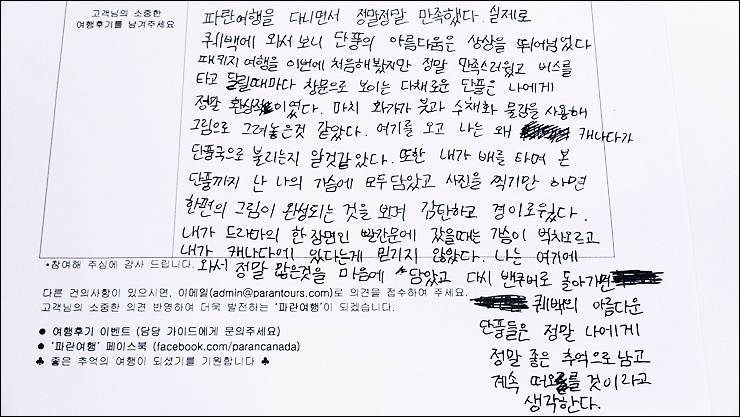 고객님의 소중한
여행후기를 남겨주세요
파란여행을 다니면서 정말정말 만족했다. 실제로
퀘백에 와서 보니 단풍의 아름다움은 상상을 뛰어넘었다
패키지여행을 이번에 처음해봤지만 정말 만족스러웠고 버스를
타고 달릴때마다 창문으로 보이는 다채로운 단풍은 나에게
정말 환상적이였다. 마치 화가가 붓과 수채화 물감을 사용해
그림으로 그려놓은것 같았다. 여기를 오고 나는 왜 캐나다가
단풍국으로 불리는지 알것같았다. 또한 내가 배를 타며 본
단풍까지 난 나의 가슴에 모두 담았고 사진을 찍기만 하면
한편의 그림이 완성되는 것을 보며 감탄하고 경이로웠다.
내가 드라마의 한 장면인 빨간문에 갔을때는 가슴이 벅차오르고
내가 캐나다에 있다는게 믿기지 않았다. 나는 여기에
*참여해 주심에 감사 드립니다.
와서 정말 많은것을 마음에 담았고 다시 밴쿠버로 돌아가면
다른 건의사항이 있으시면, 이메일(admin@parantours.com)로 의견을 접수하여 주세요.
고객님의 소중한 의견 반영하여 더욱 발전하는 '파란여행'이 되겠습니다.
퀘백의 아름다운
● 여행후기 이벤트 (담당 가이드에게 문의주세요)
단풍들은 정말 나에게
● '파란여행' 페이스북 (facebook.com/parancanada)
정말 좋은 추억으로 남고
♣ 좋은 추억의 여행이 되셨기를 기원합니다 ♣
계속 떠오를 것이라고
생각한다.